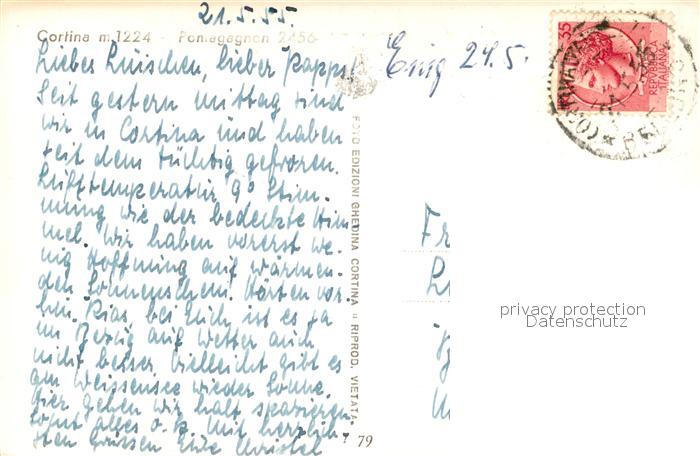 21.5.55.
Cortina m 1224 - Pomagagnon 2456
Liebes Luischen, lieber Papps!
Seit gestern mittag sind
wir in Cortina und haben
seit dem tüchtig gefroren.
Lufttemperatur 9° Stim-
mung wie der bedeckte Him
mel. Wir haben vorerst we-
nig Hoffnung auf wärmen-
den Sonnenschein. Hörten vor-
hin, bei Euch ist es ja
in Bezug auf Wetter auch
nicht besser. Vielleicht gibt es
am Weissensee wieder Sonne.
Hier gehen wir halt spazieren.
Sonst alles o.k. Mit herzlich-
sten Grüssen Eure Christel
Eing 24.5.
FOTO EDIZIONI GHEDINA CORTINA = RIPROD. VIETATA
79
35
REPVBBLICA
ITALIANA
Fr
privacy protection
Datenschutz